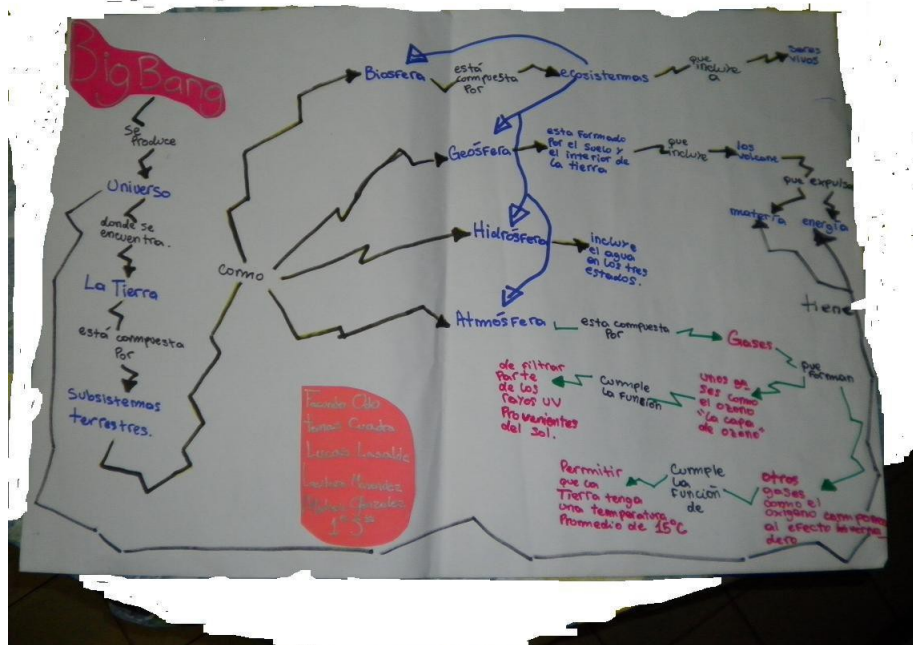 Big Bang
se
Produce
Universo
donde se
encuentra.
La Tierra
está compuesta
Por
Subsistemas
terrestres.
como
Biosfera
está
compuesta
Por
ecosistemas
que
incluye
a
seres
vivos
Geósfera
esta formado
Por el suelo y
el interior de
la tierra
que
incluye
los
volcane
que expulsa
materia energía
tiene
Hidrósfera
incluye
el agua
en los tres
estados.
Atmósfera
esta compuesta
Por
Gases
que
forman
unos ga
ses como
el ozono
"la capa
de ozono"
Cumple
la función
de filtrar
Parte
de los
rayos UV
Provenientes
del sol.
otros
gases
como el
oxigeno
al efecto inverna
dero
Cumple
la
función
de
Permitir
que la
Tierra tenga
una temperatura
Promedio de 15°C
Facundo
Tomas Cuadra
Lucas
Gonzalez